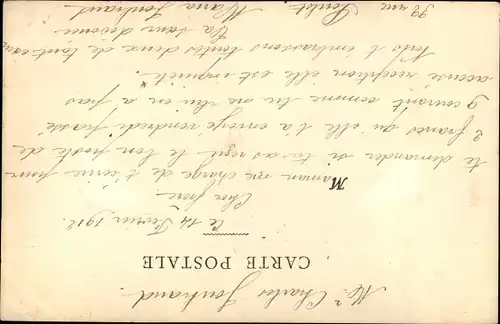 Mr Charles Jouhaud.
CARTE POSTALE
Le 14 Février 1912.
Cher frère
M
Maman me charge de t'écrire pour
te demander si tu as reçu le bon poste de
2 francs qu'elle t'a envoyé vendredi passé
9 courant comme tu ne lui en a pas
accusé réception elle est inquiète.
Nous t'embrassons toutes deux de tout cœur
Ta sœur dévouée
Maria Jouhaud